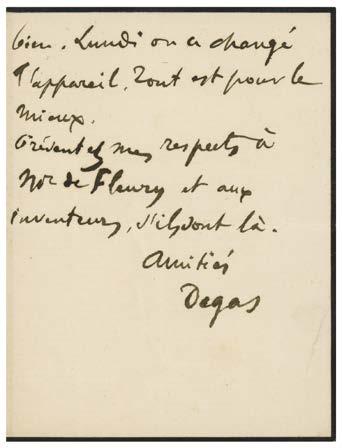 bien. Lundi on a changé
l'appareil. Tout est pour le
mieux.
Présentez mes respects à
de Fleury et aux
inventeurs, s'ils sont là.
Amitiés
Degas